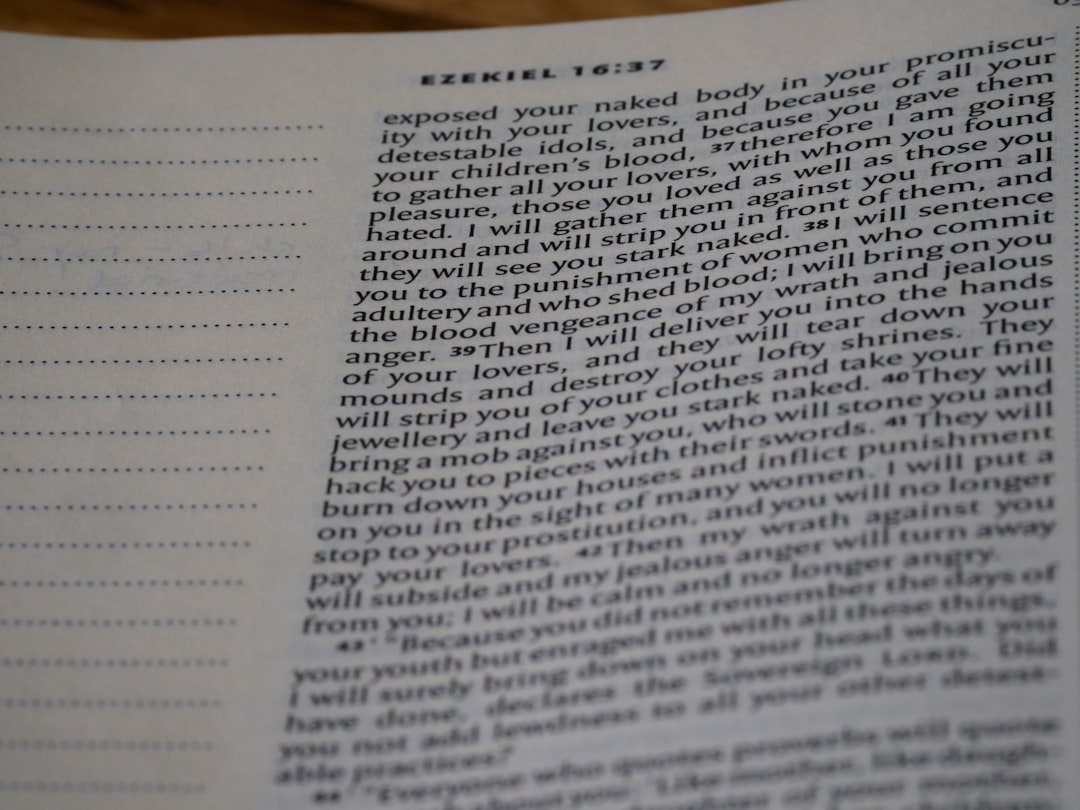 EZEKIEL 16:37
exposed your naked body in your promiscu-
ity with your lovers, and because of all your
detestable idols, and because you gave them
your children's blood, 37 therefore I am going
to gather all your lovers, with whom you found
pleasure, those you loved as well as those you
hated. I will gather them against you from all
around and will strip you in front of them, and
they will see you stark naked. 38 I will sentence
you to the punishment of women who commit
adultery and who shed blood; I will bring on you
the blood vengeance of my wrath and jealous
anger. 39 Then I will deliver you into the hands
of your lovers, and they will tear down your
mounds and destroy your lofty shrines. They
will strip you of your clothes and take your fine
jewellery and leave you stark naked. 40 They will
bring a mob against you, who will stone you and
hack you to pieces with their swords. 41 They will
burn down your houses and inflict punishment
on you in the sight of many women. I will put a
stop to your prostitution, and you will no longer
pay your lovers. 42 Then my wrath against you
will subside and my jealous anger will turn away
from you; I will be calm and no longer angry.
43 ' "Because you did not remember the days of
your youth but enraged me with all these things,
I will surely bring down on your head what you
have done, declares the Sovereign LORD. Did
you not add lewdness to all your other detest-
able practices?
44 ' "Everyone who quotes proverbs will quote
about you: 'Like mother, like daugh-
of your mother,